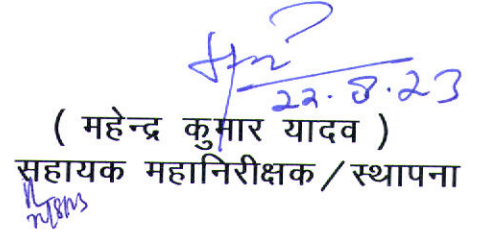 22.8.23
( महेन्द्र कुमार यादव )
सहायक महानिरीक्षक/स्थापना